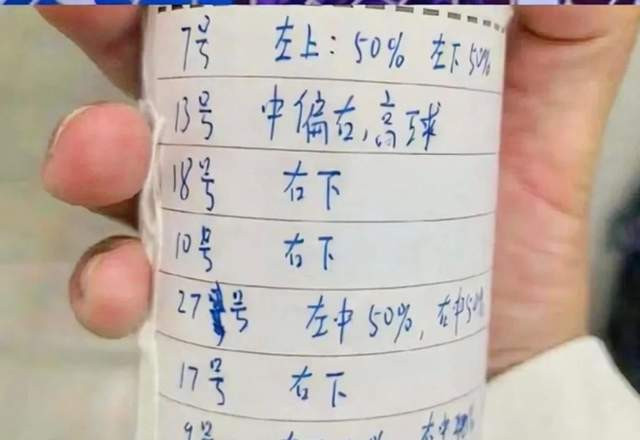 7号 左上：50% 左下50%
13号 中偏右，高球
18号 右下
10号 右下
27号 左中50%，右中50%
17号 右下
9号